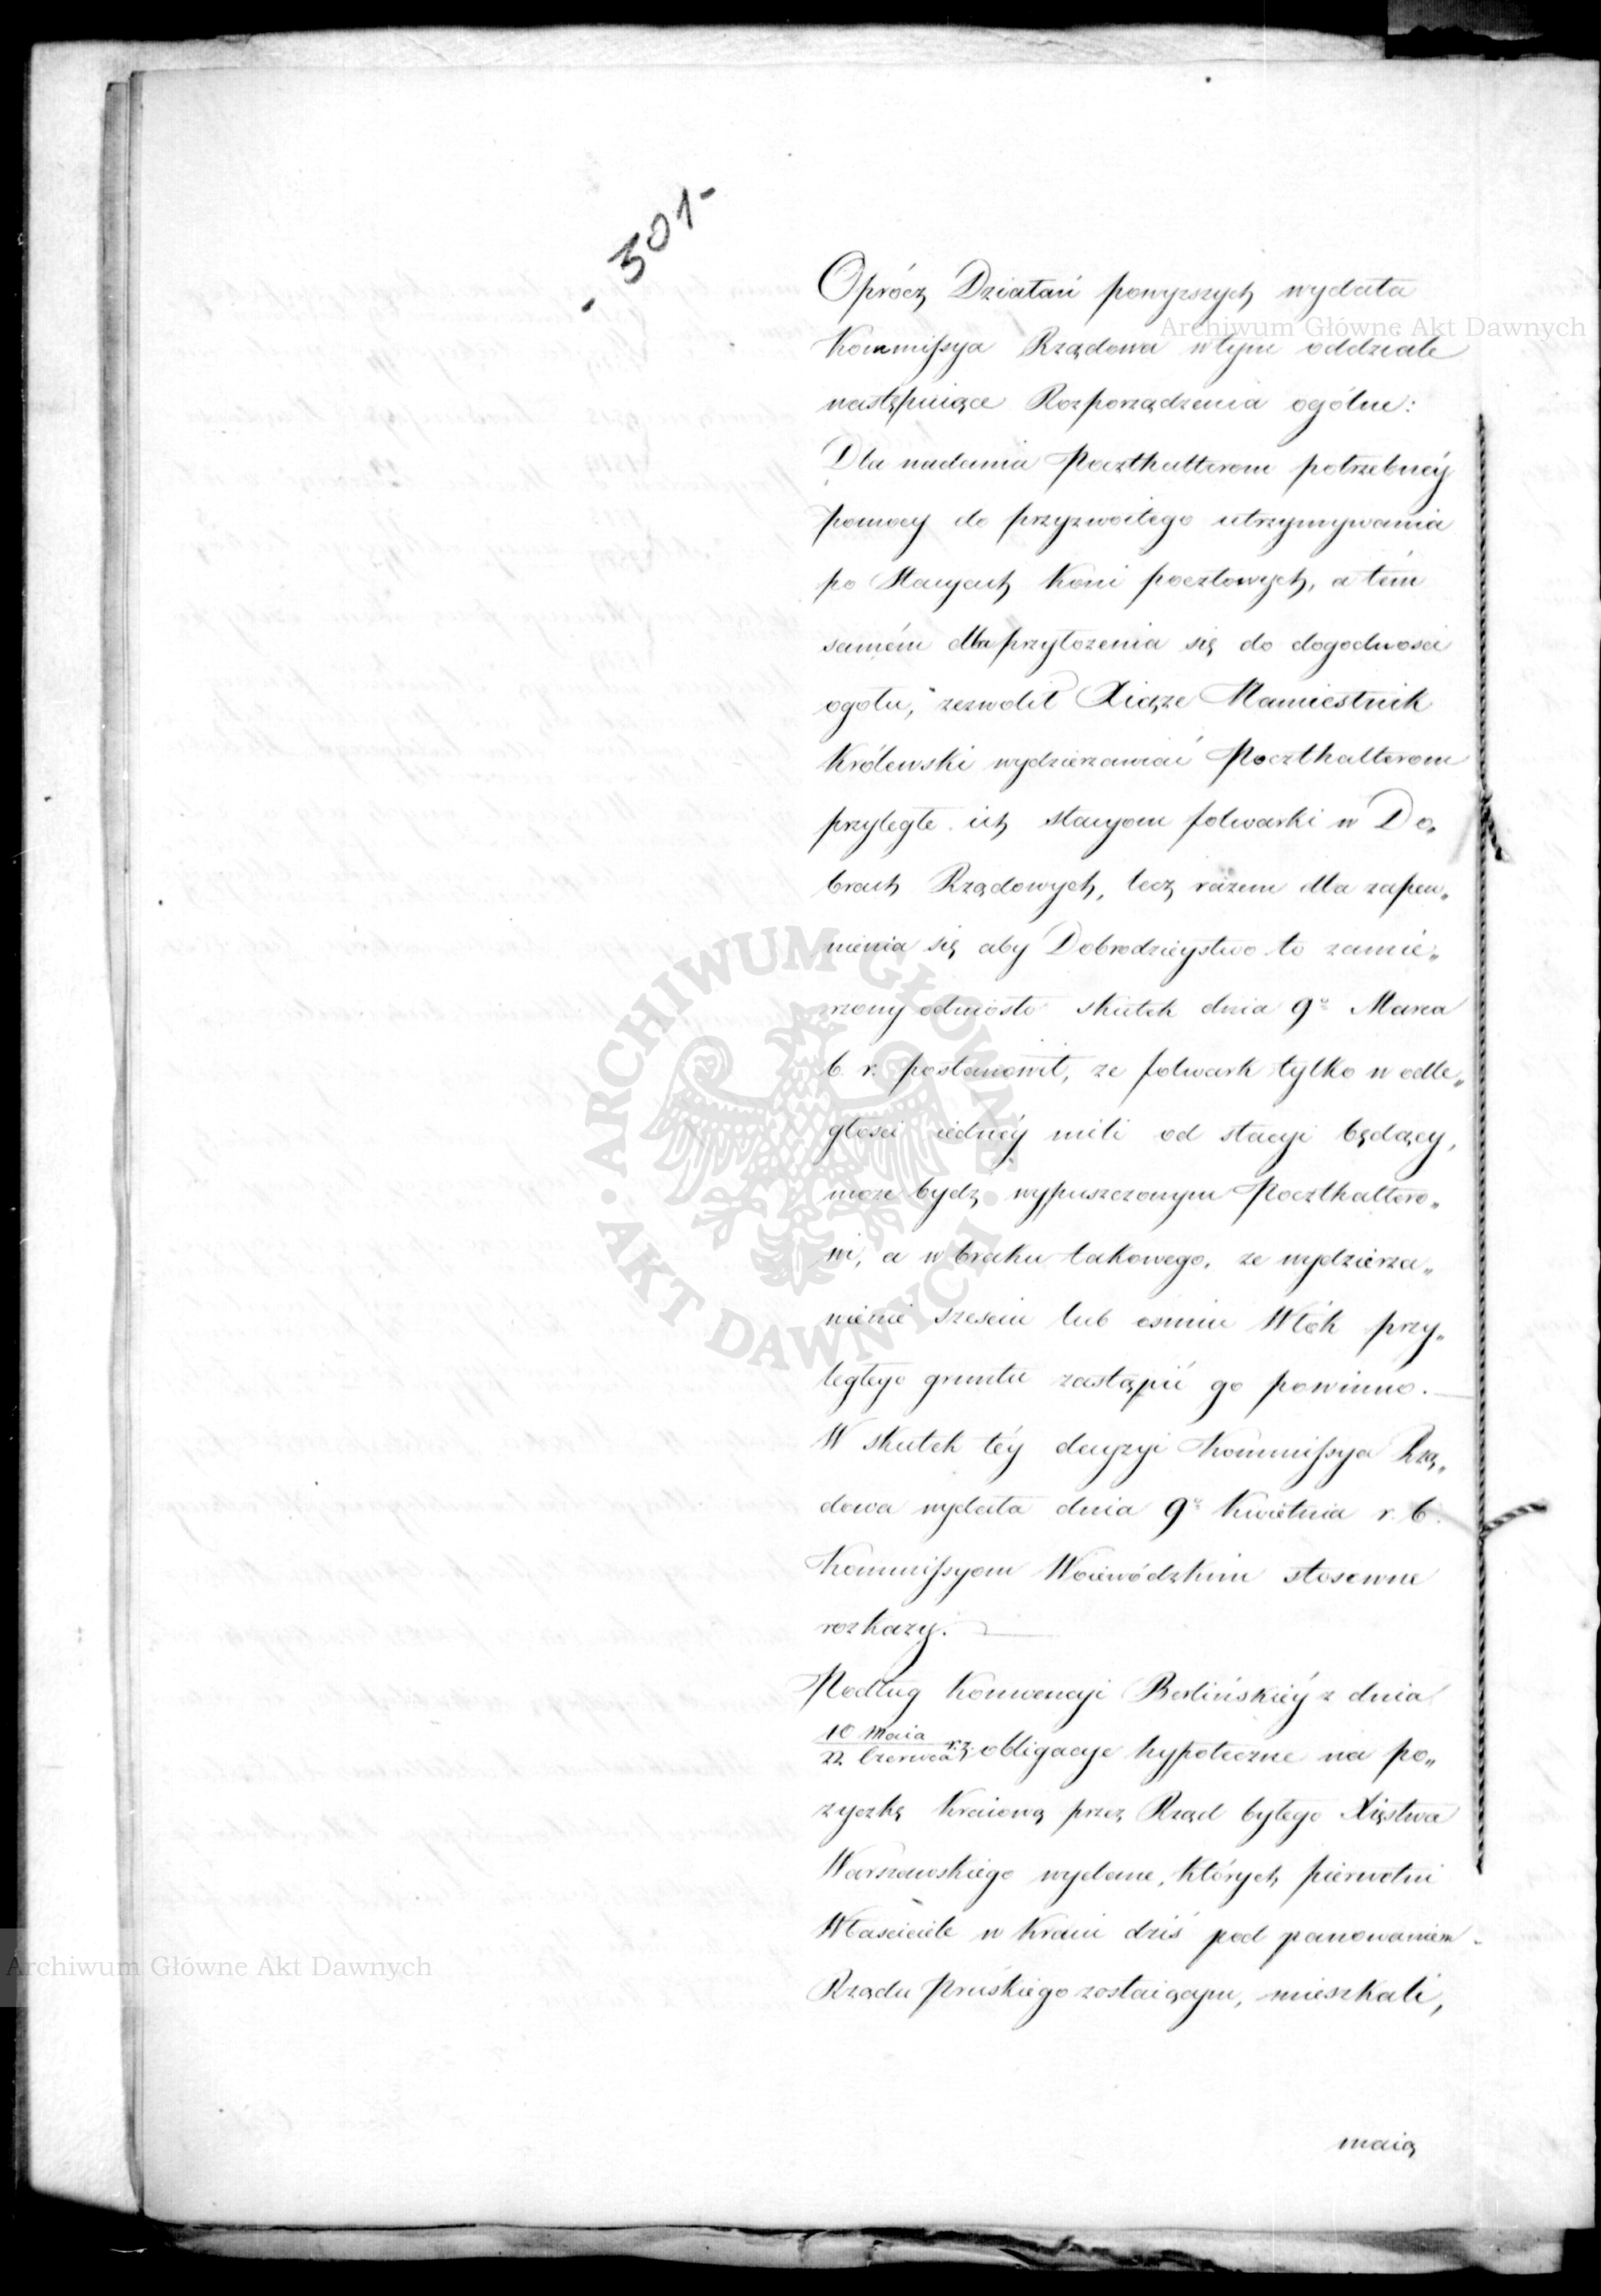 - 301 -
Oprócz Działań powyzszych wydała
Kommissya Rządowa w tym oddziale
następuiące Rozporządzenia ogólne:
Dla nadania Poczthalterom potrzebnéy
pomocy do przyzwoitego utrzymywania
po Stacyach Koni pocztowych, a tém
samém dla przyłozenia się do dogodnosci
ogołu, zezwolił Xiąze Namiestnik
Królewski wydzierzawiać Poczthalterom
przyległe ich stacyom folwarki w Do„
brach Rządowych, lecz razem dla zapew„
nienia się aby Dobrodzieystwo to zamie„
rzony odniosło skutek dnia 9º Marca
b. r. postanowił, ze folwark tylko w odle„
głosci iednéy mili od stacyi będący,
moze bydz wypuszczonym Poczthaltero„
wi, a w braku takowego, ze wydzierza„
wienie szesciu lub osmiu Włók przy„
ległego gruntu zastąpić go powinno.
W skutek téy decyzyi Kommissya Rzą„
dowa wydała dnia 9º Kwietnia r. b.
Kommissyom Woiewódzkim stosowne
rozkazy.
Podług Konwencyi Berlińskiéy z dnia
10 Maia / 22 Czerwca r. z. obligacye hypoteczne na po„
zyczkę Kraiową przez Rząd byłego Xięstwa
Warszawskiego wydane, których pierwotni
Właściciele w Kraiu dziś pod panowaniem
Rządu Pruskiego zostaiącym, mieszkali,
maią
Archiwum Główne Akt Dawnych
ARCHIWUM GŁÓWNE AKT DAWNYCH
Archiwum Główne Akt Dawnych